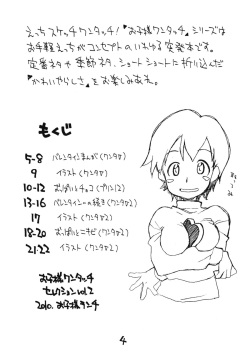 えっちスケッチワンタッチ!『お子様ワンタッチ』シリーズは
お手軽えっちがコンセプトのいわゆる突発本です。
定番ネタや季節ネタ、ショートショートに折り込んだ
"かわいやらしさ"をお楽しみあれ。
もくじ
5-8 バレンタインまんが(ワンタッチ)
9 イラスト(ワンタッチ)
10-12 おっぱいとチョコ(プリン12)
13-16 バレンタインの続き(ワンタッチ)
17 イラスト(ワンタッチ)
18-20 おっぱいとニキビ(ワンタッチ)
21-22 イラスト(ワンタッチ)
お子様ワンタッチ
セレクション vol.2
2010. お子様ランチ
4